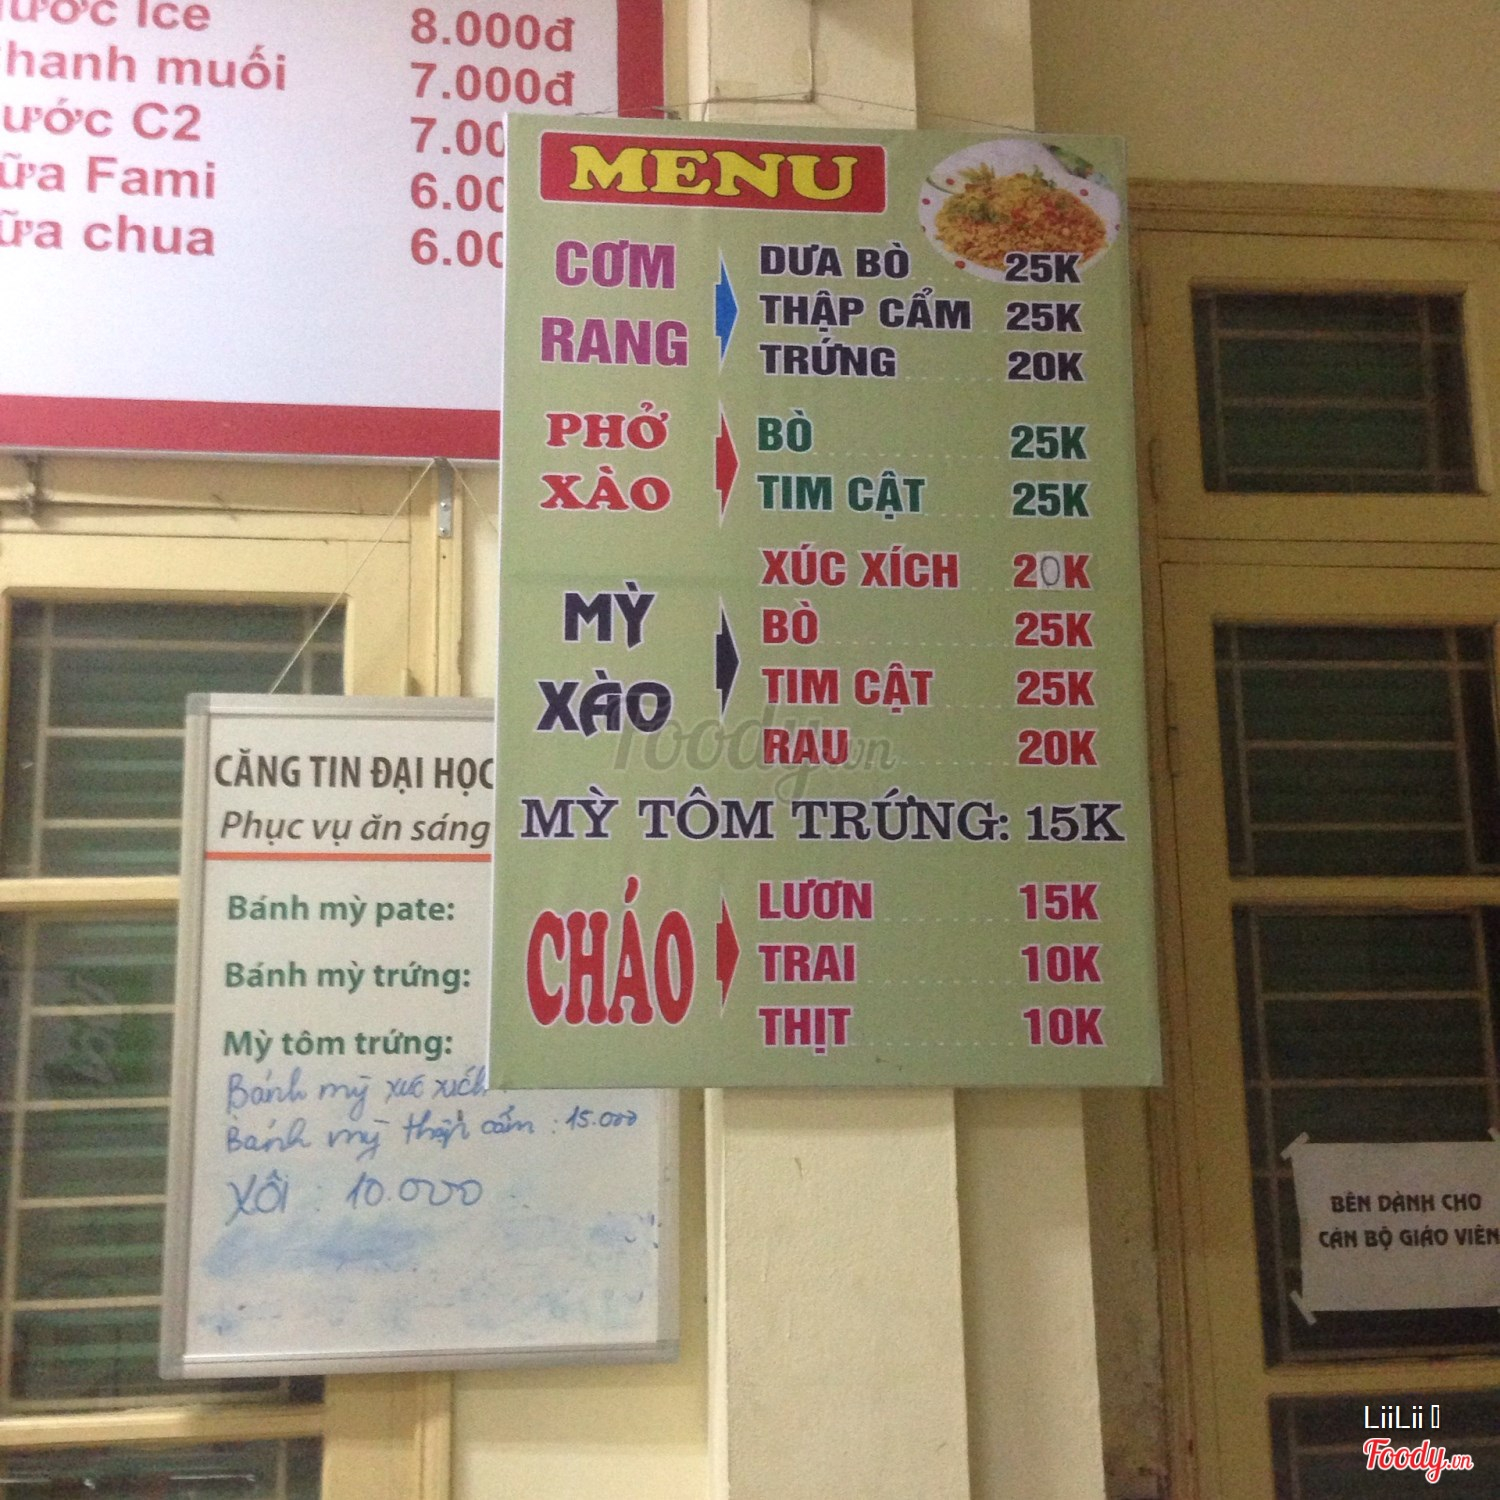 Ice 8.000đ
hanh muối 7.000đ
ước C2 7.00
ữa Fami 6.00
ữa chua 6.00
MENU
CƠM RANG
DƯA BÒ 25K
THẬP CẨM 25K
TRỨNG 20K
PHỞ XÀO
BÒ 25K
TIM CẬT 25K
MỲ XÀO
XÚC XÍCH 20K
BÒ 25K
TIM CẬT 25K
RAU 20K
MỲ TÔM TRỨNG: 15K
CHÁO
LƯƠN 15K
TRAI 10K
THỊT 10K
Foody.vn
CĂNG TIN ĐẠI HỌC
Phục vụ ăn sáng
Bánh mỳ pate:
Bánh mỳ trứng:
Mỳ tôm trứng:
Bánh mỳ xúc xích
Bánh mỳ thập cẩm : 15.000
XÔI : 10.000
BÊN DÀNH CHO
CÁN BỘ GIÁO VIÊN
LiiLii
Foody.vn